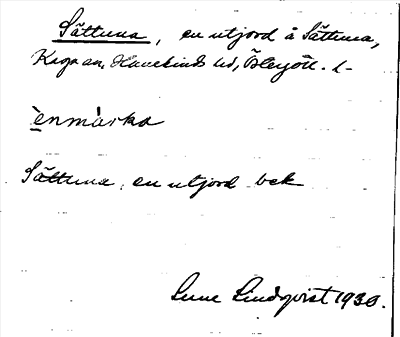 Sättuna, en utjord å Sättuna,
Kaga sn, Hanekinds hd, Östergötl. l-
ènmárka
Sättuna, en utjord bek
Sune Lindqvist 1930.